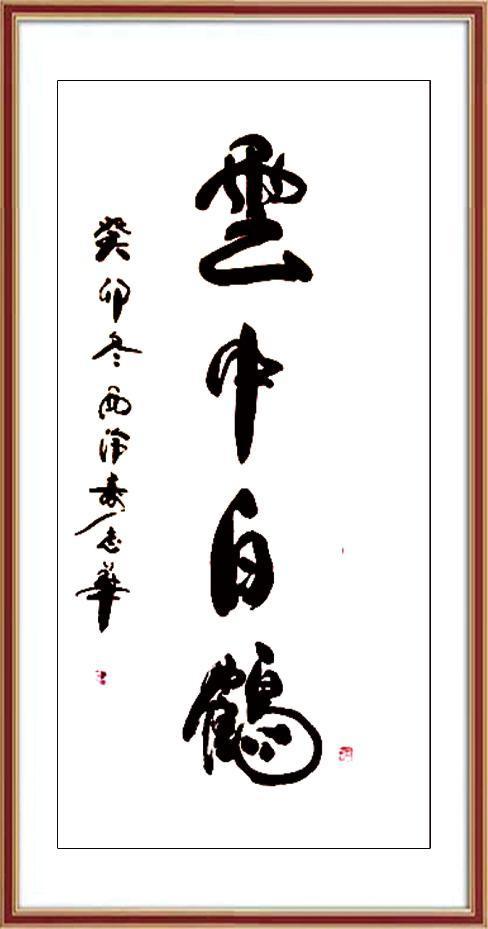 雲中白鶴
癸卯冬西泠袁志華